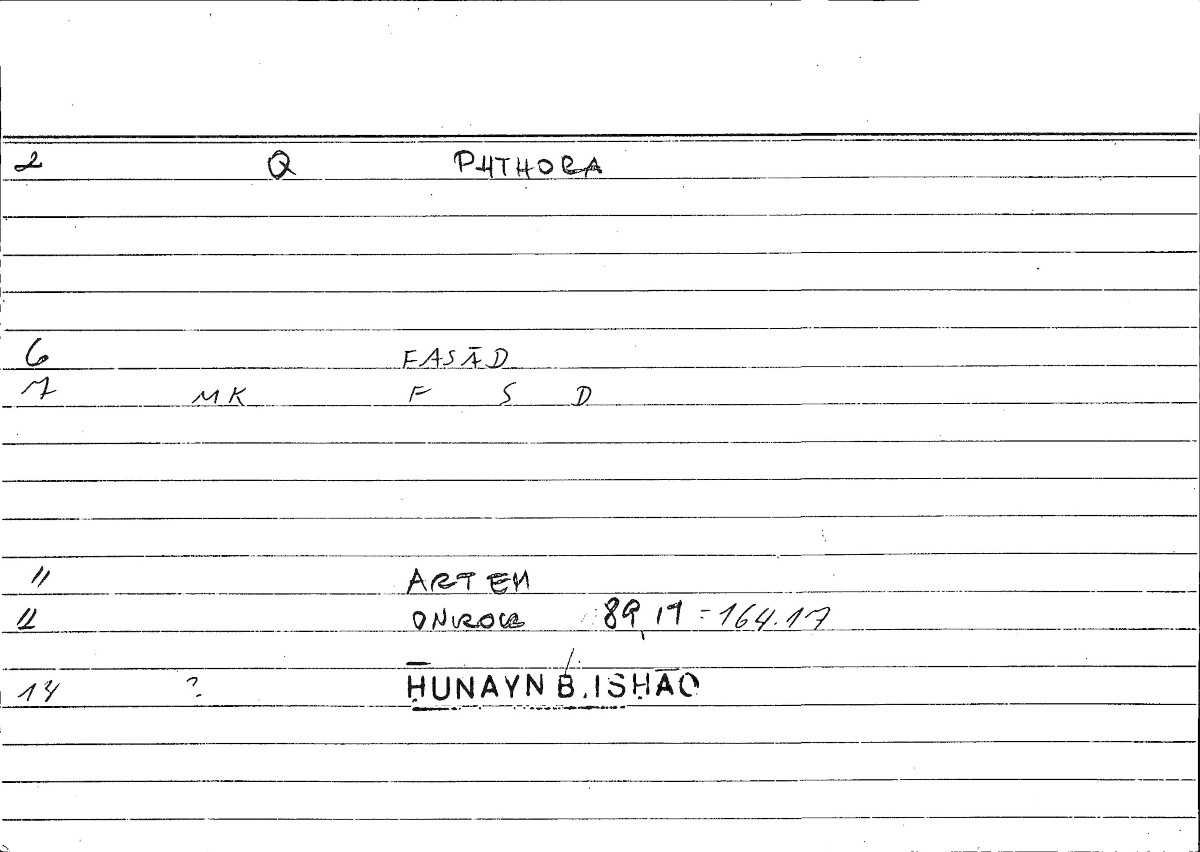 2 Q PHTHORA
6 FASĀD
7 MK F S D
11 ARTEM
12 ONIROCR 89,17 = 164.17
14 ? ḤUNAYN B. ISḤĀQ